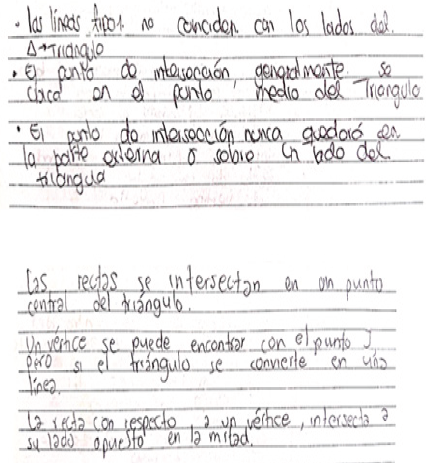 • las líneas tipo 1 no coinciden con los lados del
Δ → Triangulo
• El punto de intersección generalmente se
ubica en el punto medio del Triangulo
• El punto de intersección nunca quedará en
la parte externa o sobre un lado del
triangulo
Las rectas se intersectan en un punto
central del triángulo.
Un vértice se puede encontrar con el punto J
pero si el triángulo se convierte en una
línea.
La recta con respecto a un vértice, intersecta a
su lado opuesto en la mitad.